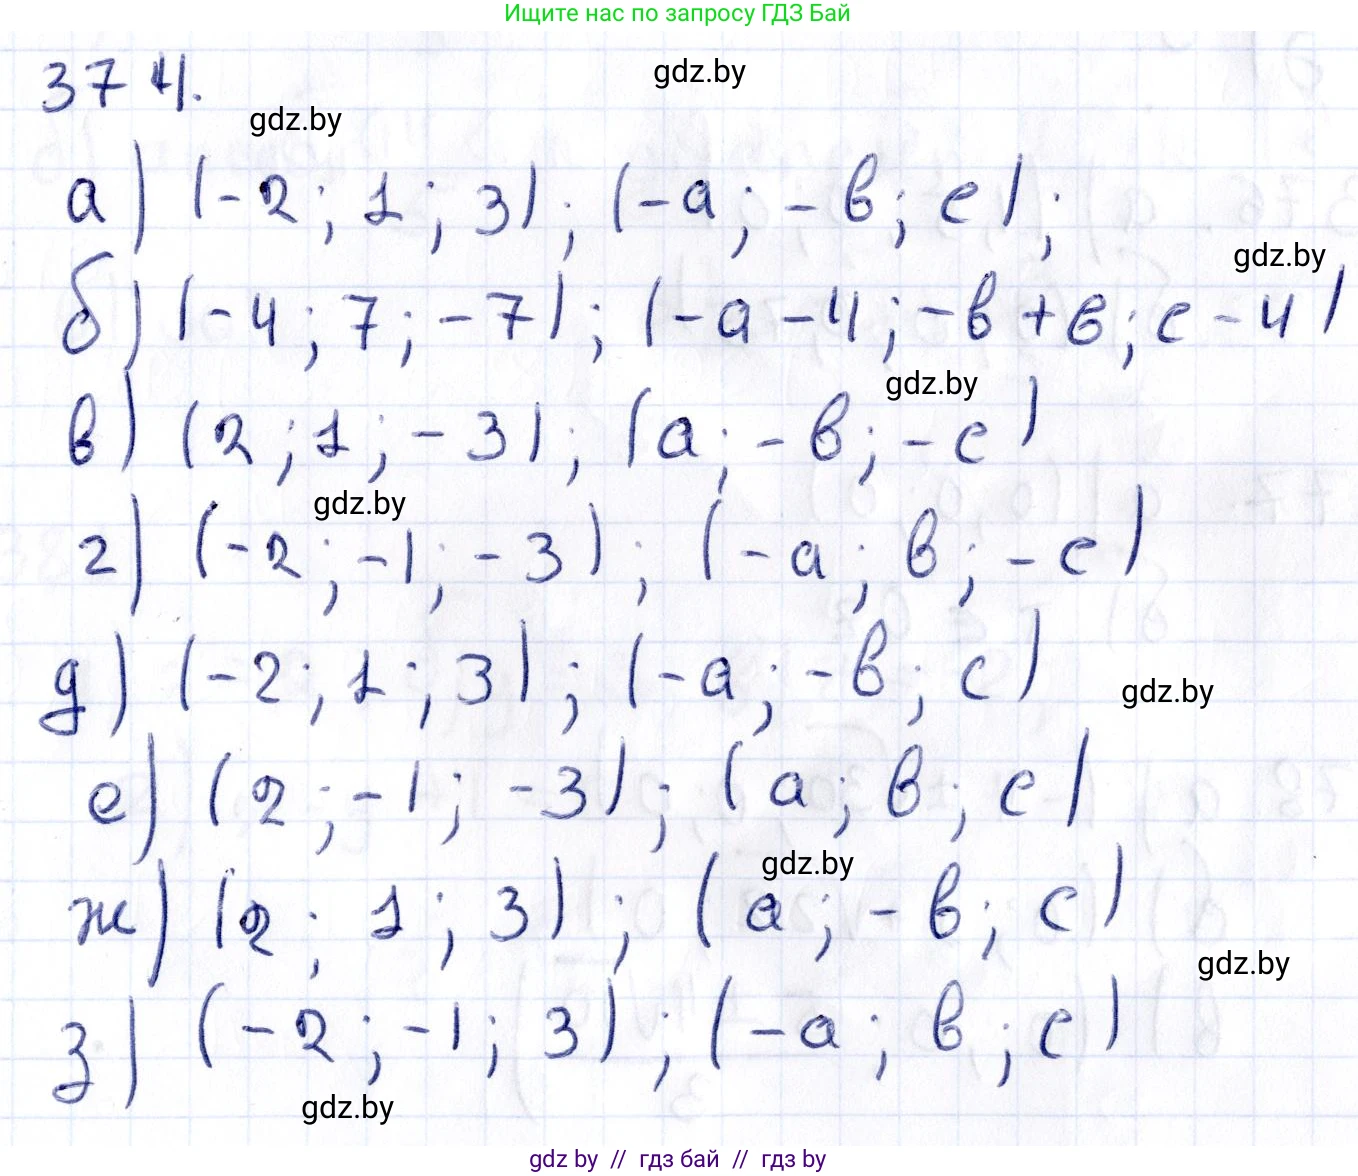 Ищите нас по запросу ГДЗ Бай
374.
gdz.by
gdz.by
а) (-2; 1; 3); (-а; -в; с);
gdz.by
б) (-4; 7; -7); (-а-4; -в+6; с-4)
gdz.by
в) (2; 1; -3); (а; -в; -с)
gdz.by
г) (-2; -1; -3); (-а; в; -с)
д) (-2; 1; 3); (-а; -в; с)
gdz.by
е) (2; -1; -3); (а; в; с)
gdz.by
ж) (2; 1; 3); (а; -в; с)
gdz.by
з) (-2; -1; 3); (-а; в; с)
gdz.by
gdz by // гдз бай // гдз by